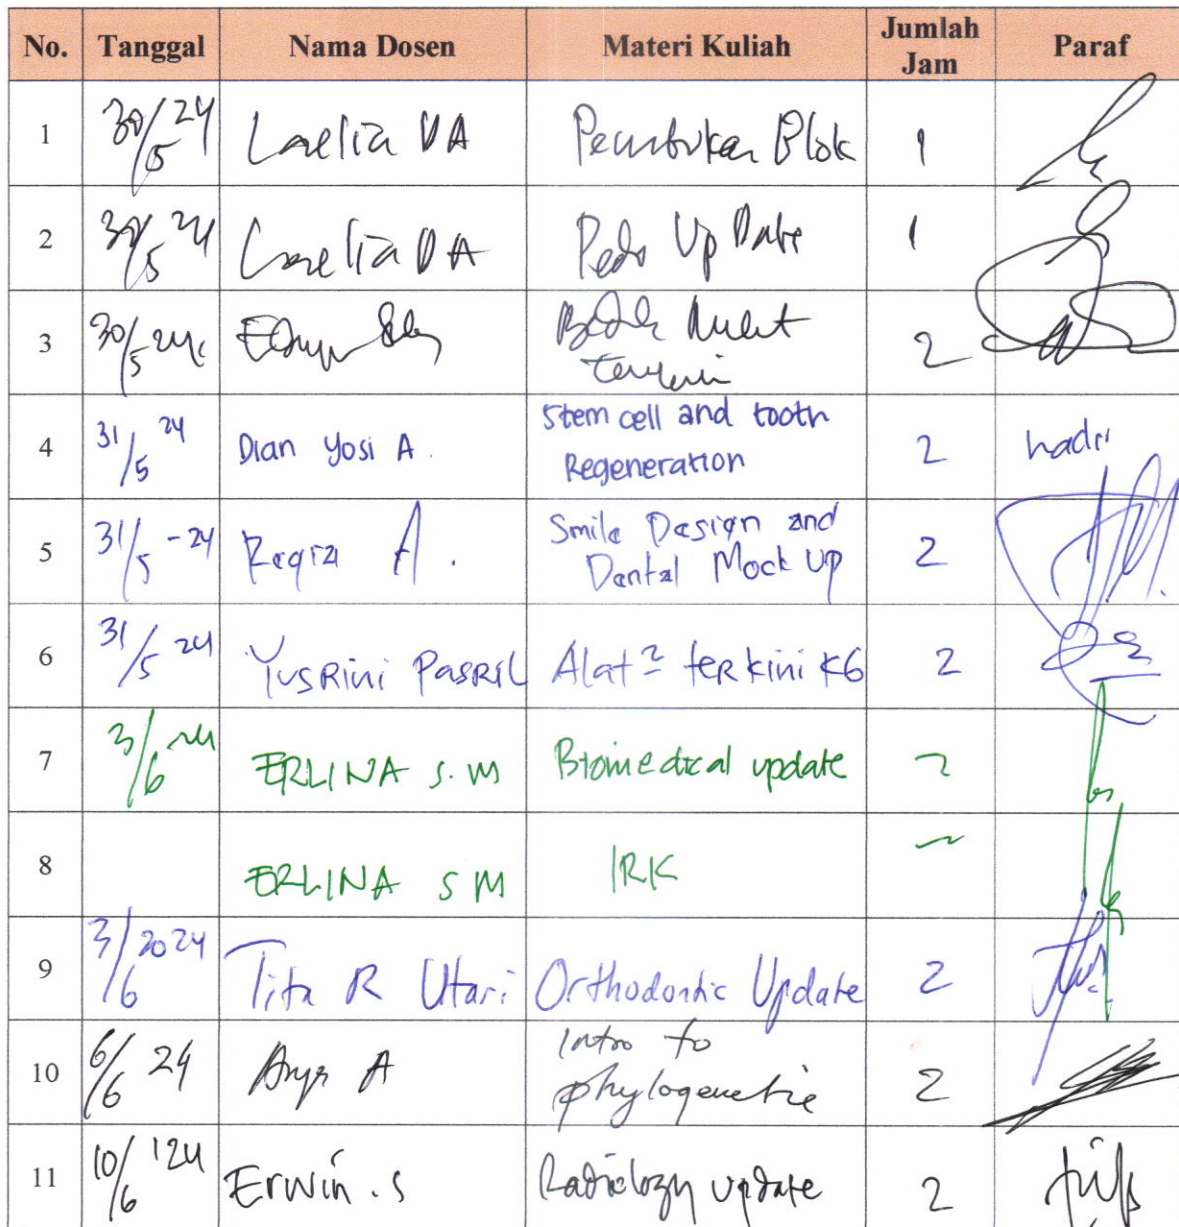 No. Tanggal Nama Dosen Materi Kuliah Jumlah Jam Paraf
1 30/5 24 Laelia DA Pembukaan Blok 1
2 30/5 24 Laelia DA Pedo Up Date 1
3 30/5 24 Bedah Mulut 2
4 31/5 24 Dian Yosi A. Stem cell and tooth Regeneration 2 hadir
5 31/5 - 24 A. Smile Design and Dental Mock Up 2
6 31/5 24 Yusrini Pasril Alat² terkini KG 2
7 3/6 24 ERLINA S.M Biomedical update 2
8 ERLINA S M IRK
9 3/6 2024 Tita R Utari Orthodontic Update 2
10 6/6 24 A Intro to phylogenetic 2
11 10/6 /24 Erwin. S Radiology update 2